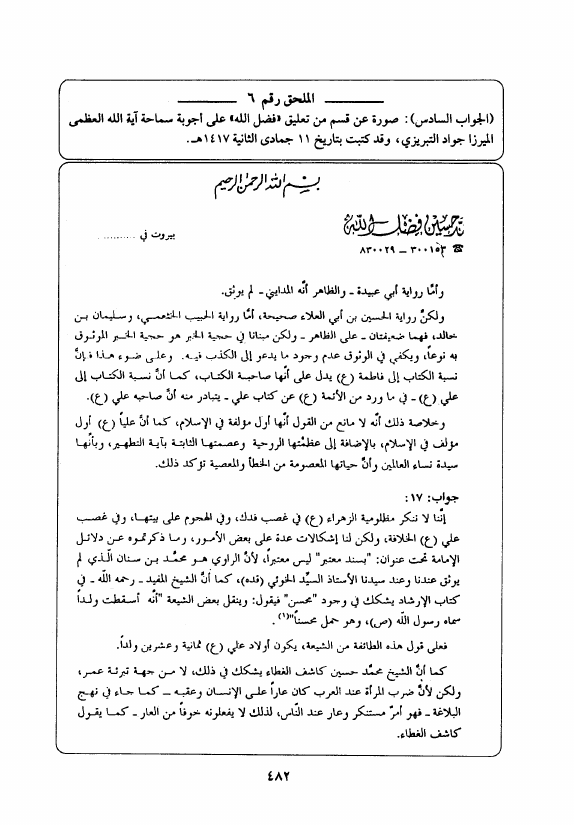 الملحق رقم ٦
(الجواب السادس): صورة عن قسم من تعليق «فضل الله» على أجوبة سماحة آية الله العظمى
الميرزا جواد التبريزي، وقد كتبت بتاريخ ١١ جمادى الثانية ١٤١٧هـ.
بسم الله الرحمن الرحيم
محمد حسين فضل الله
بيروت في ...........
☎ ٣٠٠١٥٣ – ٨٣٠٠٢٩
وأمّا رواية أبي عبيدة - والظاهر أنّه المدايني - لم يوثق.
ولكنّ رواية الحسين بن أبي العلاء صحيحة، أمّا رواية الحبيب الخثعمي، وسليمان بن
خالد، فهما ضعيفتان - على الظاهر - ولكن مبنانا في حجية الخبر هو حجية الخبر الموثوق
به نوعاً، ويكفي في الوثوق عدم وجود ما يدعو إلى الكذب فيه. وعلى ضوء هذا فإنّ
نسبة الكتاب إلى فاطمة (ع) يدل على أنّها صاحبة الكتاب، كما أنّ نسبة الكتاب إلى
علي (ع) - في ما ورد من الأئمة (ع) عن كتاب علي - يتبادر منه أنّ صاحبه علي (ع).
وخلاصة ذلك أنّه لا مانع من القول أنّها أول مؤلفة في الإسلام، كما أنّ علياً (ع) أول
مؤلف في الإسلام، بالإضافة إلى عظمتها الروحية وعصمتها الثابتة بآية التطهير، وبأنّها
سيدة نساء العالمين وأنّ حياتها المعصومة من الخطأ والمعصية تؤكد ذلك.
جواب: ١٧:
إنّنا لا ننكر مظلومية الزهراء (ع) في غصب فدك، وفي الهجوم على بيتها، وفي غصب
علي (ع) الخلافة، ولكن لنا إشكالات عدة على بعض الأمور، وما ذكرتموه عن دلائل
الإمامة تحت عنوان: "بسند معتبر" ليس معتبراً، لأنّ الراوي هو محمّد بن سنان الّذي لم
يوثق عندنا وعند سيدنا الأستاذ السيّد الخوئي (قده)، كما أنّ الشيخ المفيد - رحمه الله - في
كتاب الإرشاد يشكك في وجود "محسن" فيقول: وينقل بعض الشيعة "أنّه أسقطت ولداً
سماه رسول الله (ص)، وهو حمل محسناً"(١).
فعلى قول هذه الطائفة من الشيعة، يكون أولاد علي (ع) ثمانية وعشرين ولداً.
كما أنّ الشيخ محمّد حسين كاشف الغطاء يشكك في ذلك، لا من جهة تبرئة عمر،
ولكن لأنّ ضرب المرأة عند العرب كان عاراً على الإنسان وعقبه - كما جاء في نهج
البلاغة - فهو أمرٌ مستنكر وعار عند النّاس، لذلك لا يفعلونه خوفاً من العار - كما يقول
كاشف الغطاء.
٤٨٢